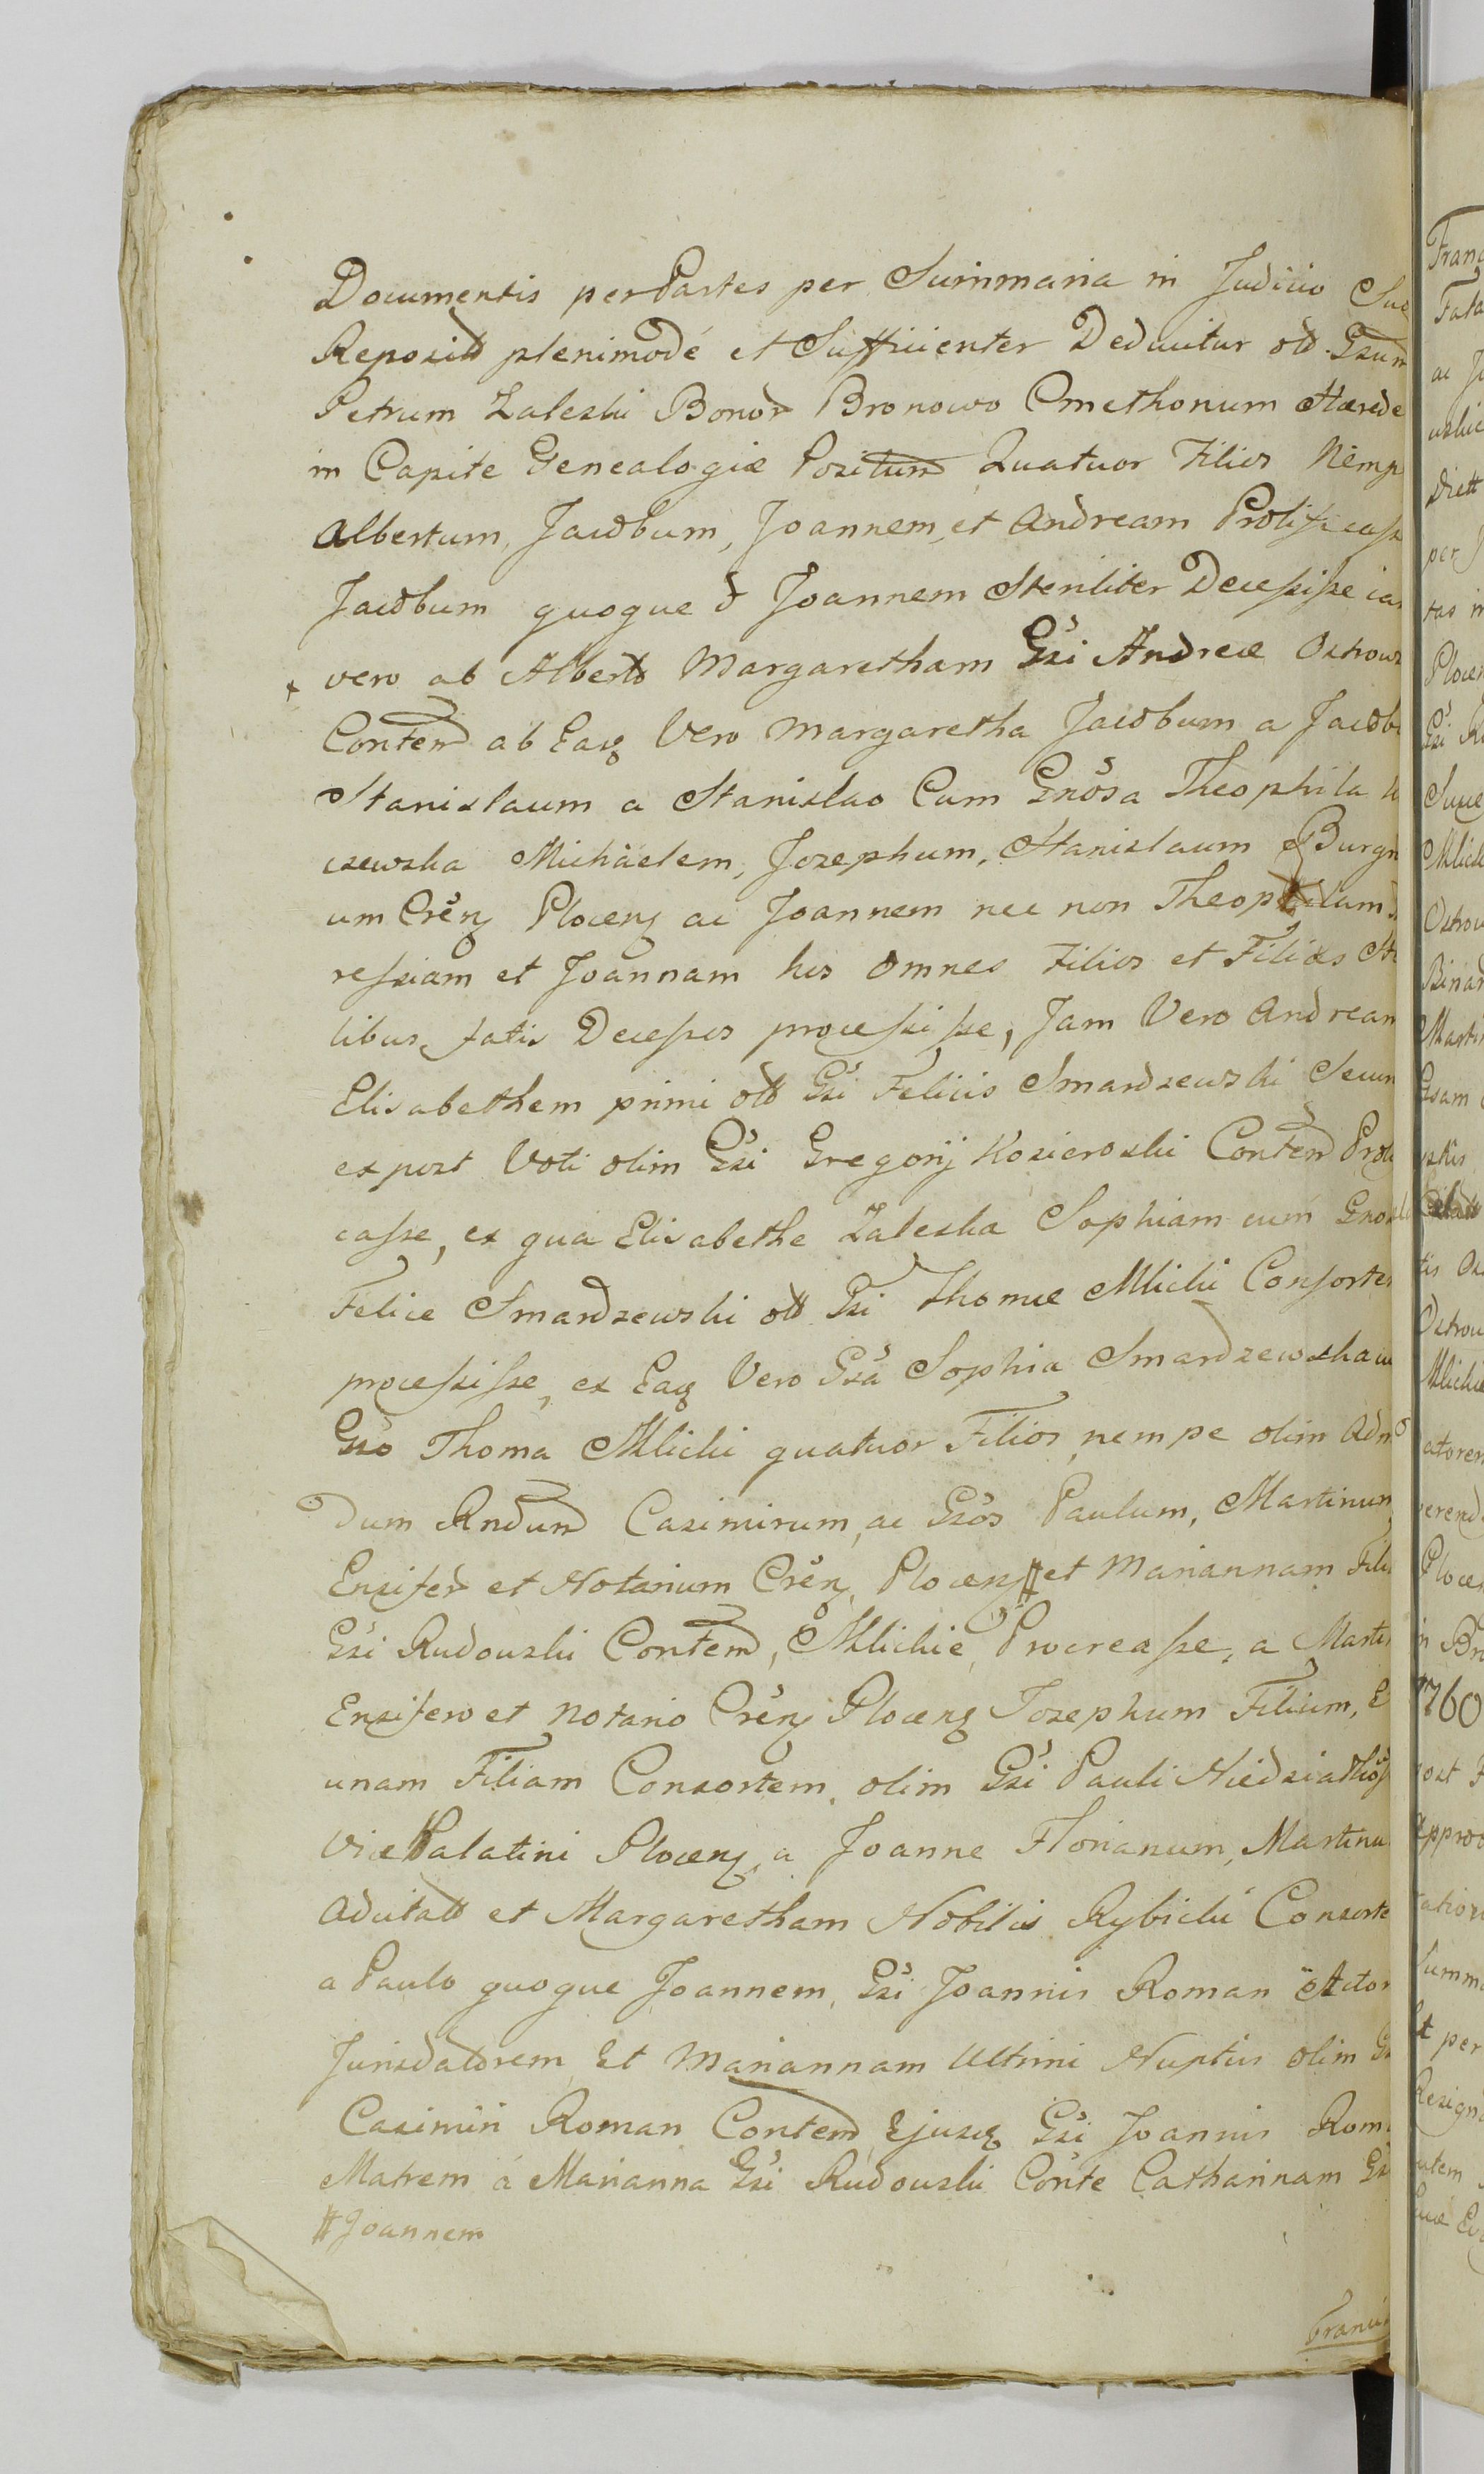 Documentis per Partes per Summaria in Judicio Suo
Reposit plenimodé et Sufficienter Deducitur olt Gsum
Petrum Zaleski Bonor Bronowo Cmethonum Hærede
in Capite Genealogiæ Positum Quatuor Filios Nemp
Albertum, Jacobum, Joannem, et Andream Prolificass
Jacobum quoque & Joannem Steriliter Decessisse
vero ab Alberto Margaretham Gsi Andreæ Ostrows
Contem ab Eaq Vero Margaretha Jacobum a Jacob
Stanislaum a Stanislao Cum Gnosa Theophila
czewska Michäelem, Josephum, Stanislaum Burgr
um Cren Plocen ac Joannem nec non Theophilam
ressiam et Joannam hos omnes Filios et Filias St
libus fatis Decessos processisse, Jam Vero Andrean
Elisabethem primi olt Gsi Felicis Smardzewski Secun
expost Voti olim Gsi Gregorij Kosieroski Contem Proli
casse, ex qua Elisabethe Zaleska Sophiam cum Gnos
Felice Smardzewski olt Gsi Thomæ Mlicki Consorte
processisse, ex Eaq Vero Gsa Sophia Smardzewska
Gso Thoma Mlicki quatuor Filios nempe olim Adm
dum Rndum Casimirum, ac Gsos Paulum, Martinum
Ensifer et Notarium Cren, Plocen # et Mariannam Fili
Gsi Rudowski Contem, Mlickie, Procreasse, a Marti
Ensifero et Notario Cren Plocen Josephum Filium, E
unam Filiam Consortem olim Gsi Pauli
Vice Palatini Plocen, a Joanne Florianum, Martinu
Adcitatt et Margaretham Nobilis Rybicki Consorte
a Paulo quoque Joannem, Gsi Joannis Roman Actor
Jurisdatorem Et Mariannam Ultimi Nuptiis olim G
Casimiri Roman Contem Ejusq Gsi Joannis Rom
Matrem á Marianna Gsi Rudowski Conte Catharinam Gs
# Joannem
Franc
Franc
Fata
ac J
wskie
Dictt
per J
tas in
Plocen
Gsi R
Succe
Mlick
Ostrow
Binar
Marti
Gsam
Ostrow
Mlickie
atorem
verend
Ploce
in Br
1760
post
Approb
ration
Summa
Et per
Resigna
autem